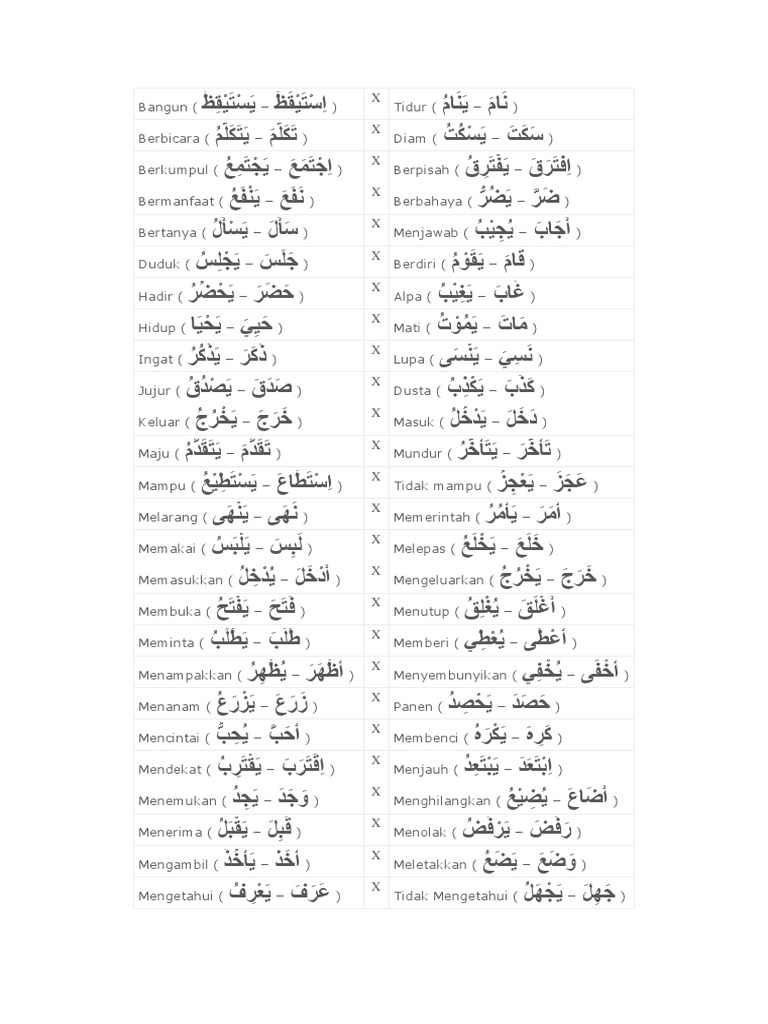 Bangun ( اِسْتَيْقَظَ – يَسْتَيْقِظُ ) X Tidur ( نَامَ – يَنَامُ )
Berbicara ( تَكَلَّمَ – يَتَكَلَّمُ ) X Diam ( سَكَتَ – يَسْكُتُ )
Berkumpul ( اِجْتَمَعَ – يَجْتَمِعُ ) X Berpisah ( اِفْتَرَقَ – يَفْتَرِقُ )
Bermanfaat ( نَفَعَ – يَنْفَعُ ) X Berbahaya ( ضَرَّ – يَضُرُّ )
Bertanya ( سَأَلَ – يَسْأَلُ ) X Menjawab ( أَجَابَ – يُجِيْبُ )
Duduk ( جَلَسَ – يَجْلِسُ ) X Berdiri ( قَامَ – يَقَوْمُ )
Hadir ( حَضَرَ – يَحْضُرُ ) X Alpa ( غَابَ – يَغِيْبُ )
Hidup ( حَيِيَ – يَحْيَا ) X Mati ( مَاتَ – يَمُوْتُ )
Ingat ( ذَكَرَ – يَذْكُرُ ) X Lupa ( نَسِيَ – يَنْسَى )
Jujur ( صَدَقَ – يَصْدُقُ ) X Dusta ( كَذَبَ – يَكْذِبُ )
Keluar ( خَرَجَ – يَخْرُجُ ) X Masuk ( دَخَلَ – يَدْخُلُ )
Maju ( تَقَدَّمَ – يَتَقَدَّمُ ) X Mundur ( تَأَخَّرَ – يَتَأَخَّرُ )
Mampu ( اِسْتَطَاعَ – يَسْتَطِيْعُ ) X Tidak mampu ( عَجَزَ – يَعْجِزُ )
Melarang ( نَهَى – يَنْهَى ) X Memerintah ( أَمَرَ – يَأْمُرُ )
Memakai ( لَبِسَ – يَلْبَسُ ) X Melepas ( خَلَعَ – يَخْلَعُ )
Memasukkan ( أَدْخَلَ – يُدْخِلُ ) X Mengeluarkan ( خَرَجَ – يَخْرُجُ )
Membuka ( فَتَحَ – يَفْتَحُ ) X Menutup ( أَغْلَقَ – يُغْلِقُ )
Meminta ( طَلَبَ – يَطْلَبُ ) X Memberi ( أَعْطَى – يُعْطِي )
Menampakkan ( أَظْهَرَ – يُظْهِرُ ) X Menyembunyikan ( أَخْفَى – يُخْفِي )
Menanam ( زَرَعَ – يَزْرَعُ ) X Panen ( حَصَدَ – يَحْصِدُ )
Mencintai ( أَحَبَّ – يُحِبُّ ) X Membenci ( كَرِهَ – يَكْرَهُ )
Mendekat ( اِقْتَرَبَ – يَقْتَرِبُ ) X Menjauh ( اِبْتَعَدَ – يَبْتَعِدُ )
Menemukan ( وَجَدَ – يَجِدُ ) X Menghilangkan ( أَضَاعَ – يُضِيْعُ )
Menerima ( قَبِلَ – يَقْبَلُ ) X Menolak ( رَفَضَ – يَرْفَضُ )
Mengambil ( أَخَذَ – يَأْخُذُ ) X Meletakkan ( وَضَعَ – يَضَعُ )
Mengetahui ( عَرَفَ – يَعْرِفُ ) X Tidak Mengetahui ( جَهِلَ – يَجْهَلُ )